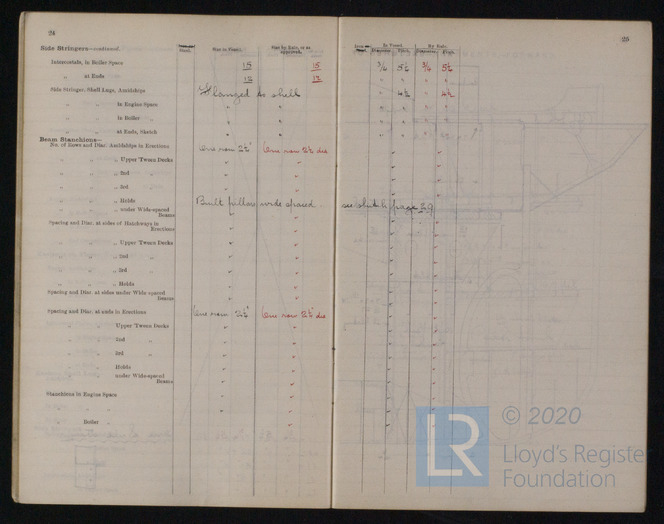 24
Side Stringers—continued.
Size in Vessel.
Size by Rule, or as approved.
Intercostals, in Boiler Space 15 15
„ at Ends 12 12
Side Stringer, Shell Lugs, Amidships Flanged to shell
„ „ in Engine Space „ „
„ „ in Boiler „ „ „
„ „ at Ends, Sketch „ „
Beam Stanchions—
No. of Rows and Diar. Amidships in Erections One row 2½" One row 2½ dia
„ „ Upper 'Tween Decks
„ „ 2nd „
„ „ 3rd „
„ „ Holds Built pillars wide spaced see sketch page 29
„ „ under Wide-spaced Beams
Spacing and Diar. at sides of Hatchways in Erections
„ „ Upper 'Tween Decks
„ „ 2nd „
„ „ 3rd „
„ „ Holds
Spacing and Diar. at sides under Wide-spaced Beams
Spacing and Diar. at ends in Erections One row 2½" One row 2½" dia
„ Upper 'Tween Decks
„ 2nd „
„ 3rd „
„ Holds
„ under Wide-spaced Beams
Stanchions in Engine Space
„ „
„ Boiler „
25
In Vessel.
By Rule.
Diameter. Thick. Diameter. Thick.
3/4 5½ 3/4 5½
„ „ „ „
„ 4½ „ 4½
© 2020
LR
Lloyd's Register
Foundation